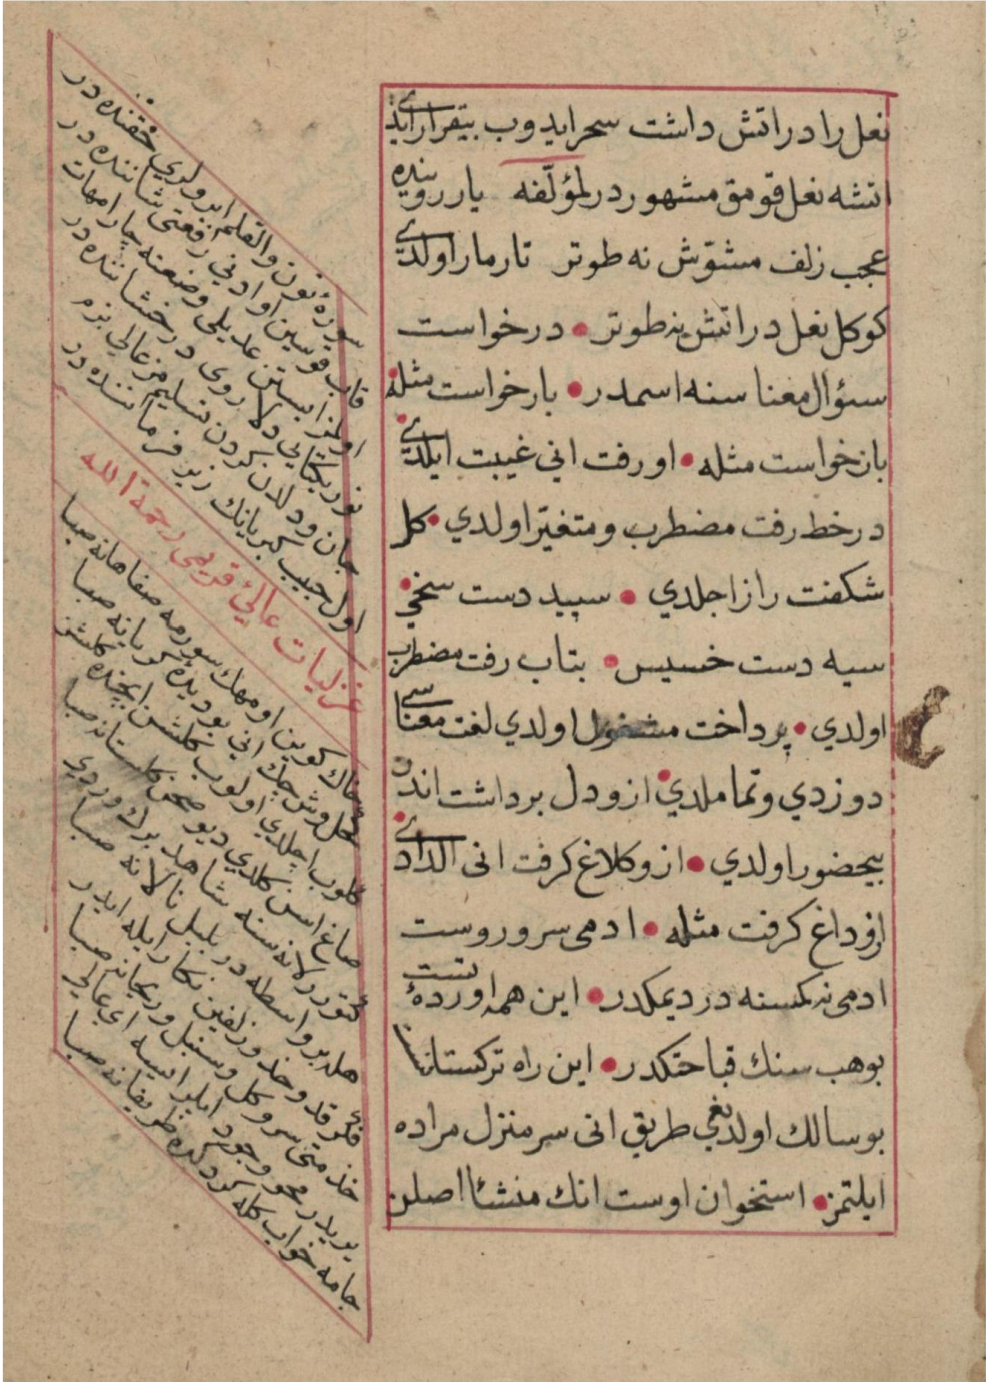 نعل را در اتش داشت سحر ايدوب بيقرار ايلدى
اتشه نعل قومق مشهور در لمؤلفه يار روينده
عجب زلف مشوّش نه طوتر تارمار اولدى
كوكل نعل در اتش نه طوتر • درخواست
سؤال معنا سنه اسمدر • بارخواست مثله
بازخواست مثله • اورفت انى غيبت ايلدى
در خط رفت مضطرب و متغيّر اولدي • كل
شكفت راز اجلدي • سپيد دست سخى •
سيه دست خسيس • بتاب رفت مضطرب
اولدي • پرداخت مشغول اولدي لغت معناسى
دوزدي و تماملدي • ازو دل برداشت اندن
بيحضور اولدي • ازو كلاغ كرفت انى الدادى
ازو داغ كرفت مثله • ادمى سر وروست
ادمى نه كمسنه در ديمكدر • اين همه اوردهٔ تست
بو هب سنك قباحتكدر • اين راه تركستانست
بو سالك اولديغى طريق انى سر منزل مراده
ايلتمز • استخوان اوست انك منشأ اصلن
سورهٔ نون والقلم ابرولرى حقنده در
قاب قوسين او ادنى رفعتى شاننده در
اولمز ايسه عديلى وضعنه چار امهات
نور يكتايى دلا روى درخشاننده در
جان و دلدن كردن تسليمز عالى بزم
اول حبيب كبريانك زير فرماننده در
غزليات عالئ قريمى رحمة الله
خاك كوين او مهك سورمه صفاهانه صبا
كل وش چاك انى بو ديده كريانه صبا
كلوب اچلدي اولوب كلشن ايچنده كلشن
صاغ اسن كلدي ديو صحن كلستانه صبا
كتورر لانه سنه شاهد برك وردى
هله بر واسطه در بلبل نالانه صبا
فكر قد و خد و زلفين نكار ايله ايدر
خدمتى سرو كل و سنبل و ريحانه صبا
يويلدر محو وجود ايلر ايسه اى عالى
جامه خواب كله كردكده ظريفانه صبا